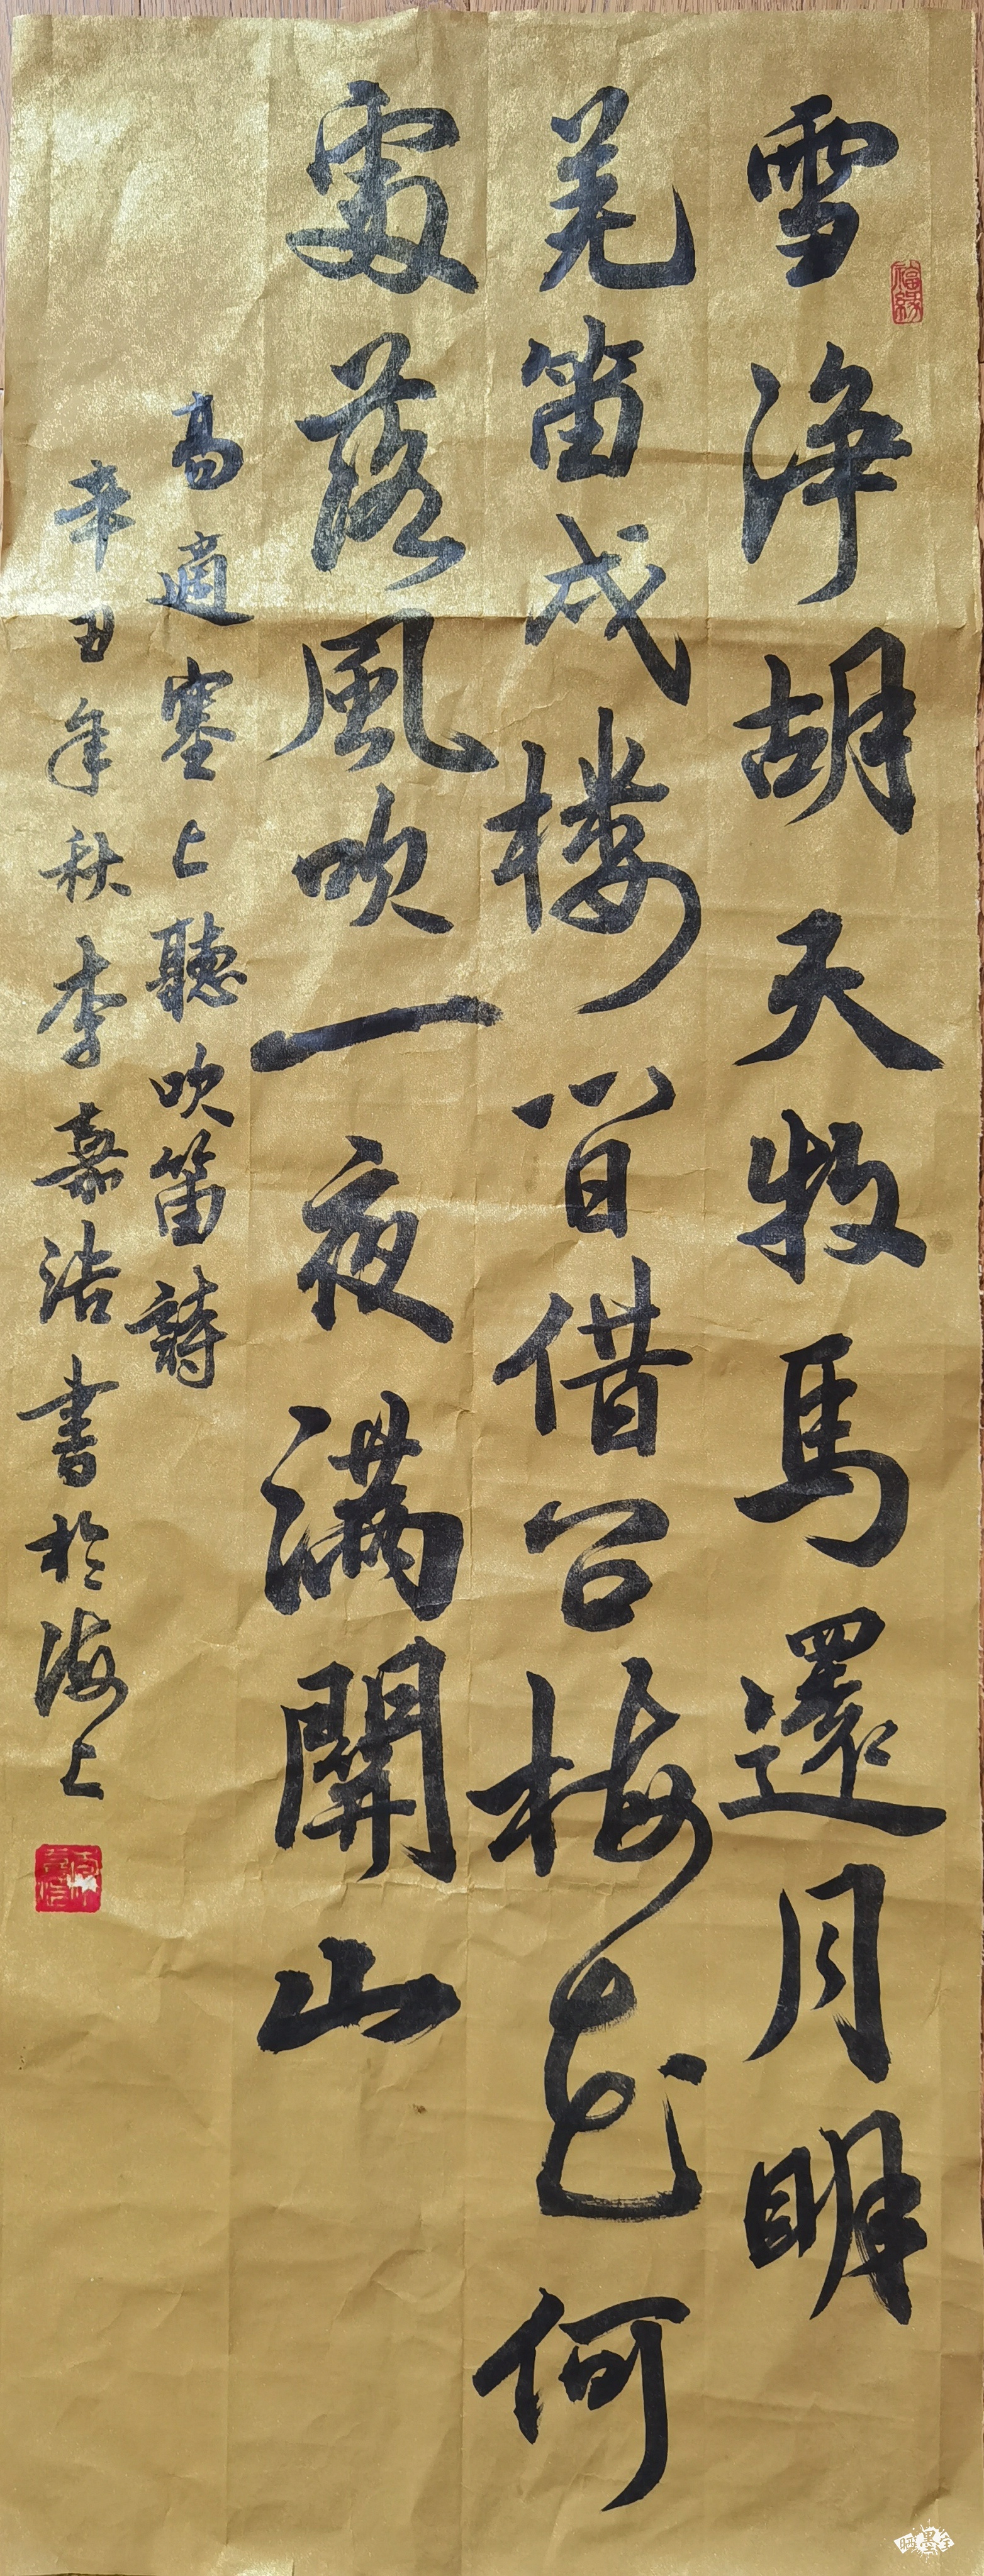 雪浄胡天牧馬還月明
羌笛戍楼間借問梅花何
處落風吹一夜滿開山
高適塞上聽吹笛詩
辛丑年秋李嘉浩書於海上
福緣
晒墨宝